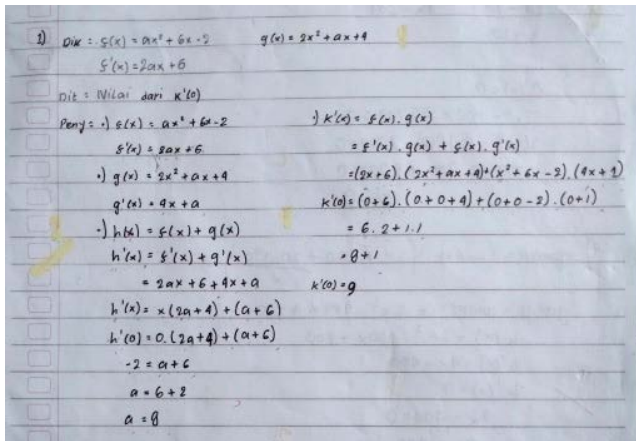 1) Dik = f(x) = ax² + 6x - 2 g(x) = 2x² + ax + 4
f'(x) = 2ax + 6
Dit : Nilai dari k'(0)
Peny = •) f(x) = ax² + 6x - 2
f'(x) = 2ax + 6
•) g(x) = 2x² + ax + 4
g'(x) = 4x + a
•) h(x) = f(x) + g(x)
h'(x) = f'(x) + g'(x)
= 2ax + 6 + 4x + a
h'(x) = x (2a + 4) + (a + 6)
h'(0) = 0. (2a + 4) + (a + 6)
-2 = a + 6
a = 6 + 2
a = 8
•) k'(x) = f(x) . g(x)
= f'(x) . g(x) + f(x) . g'(x)
= (2x + 6) . (2x² + ax + 4) + (x² + 6x - 2) . (4x + 1)
k'(0) = (0 + 6) . (0 + 0 + 4) + (0 + 0 - 2) . (0 + 1)
= 6 . 2 + 1 . 1
= 8 + 1
k'(0) = 9